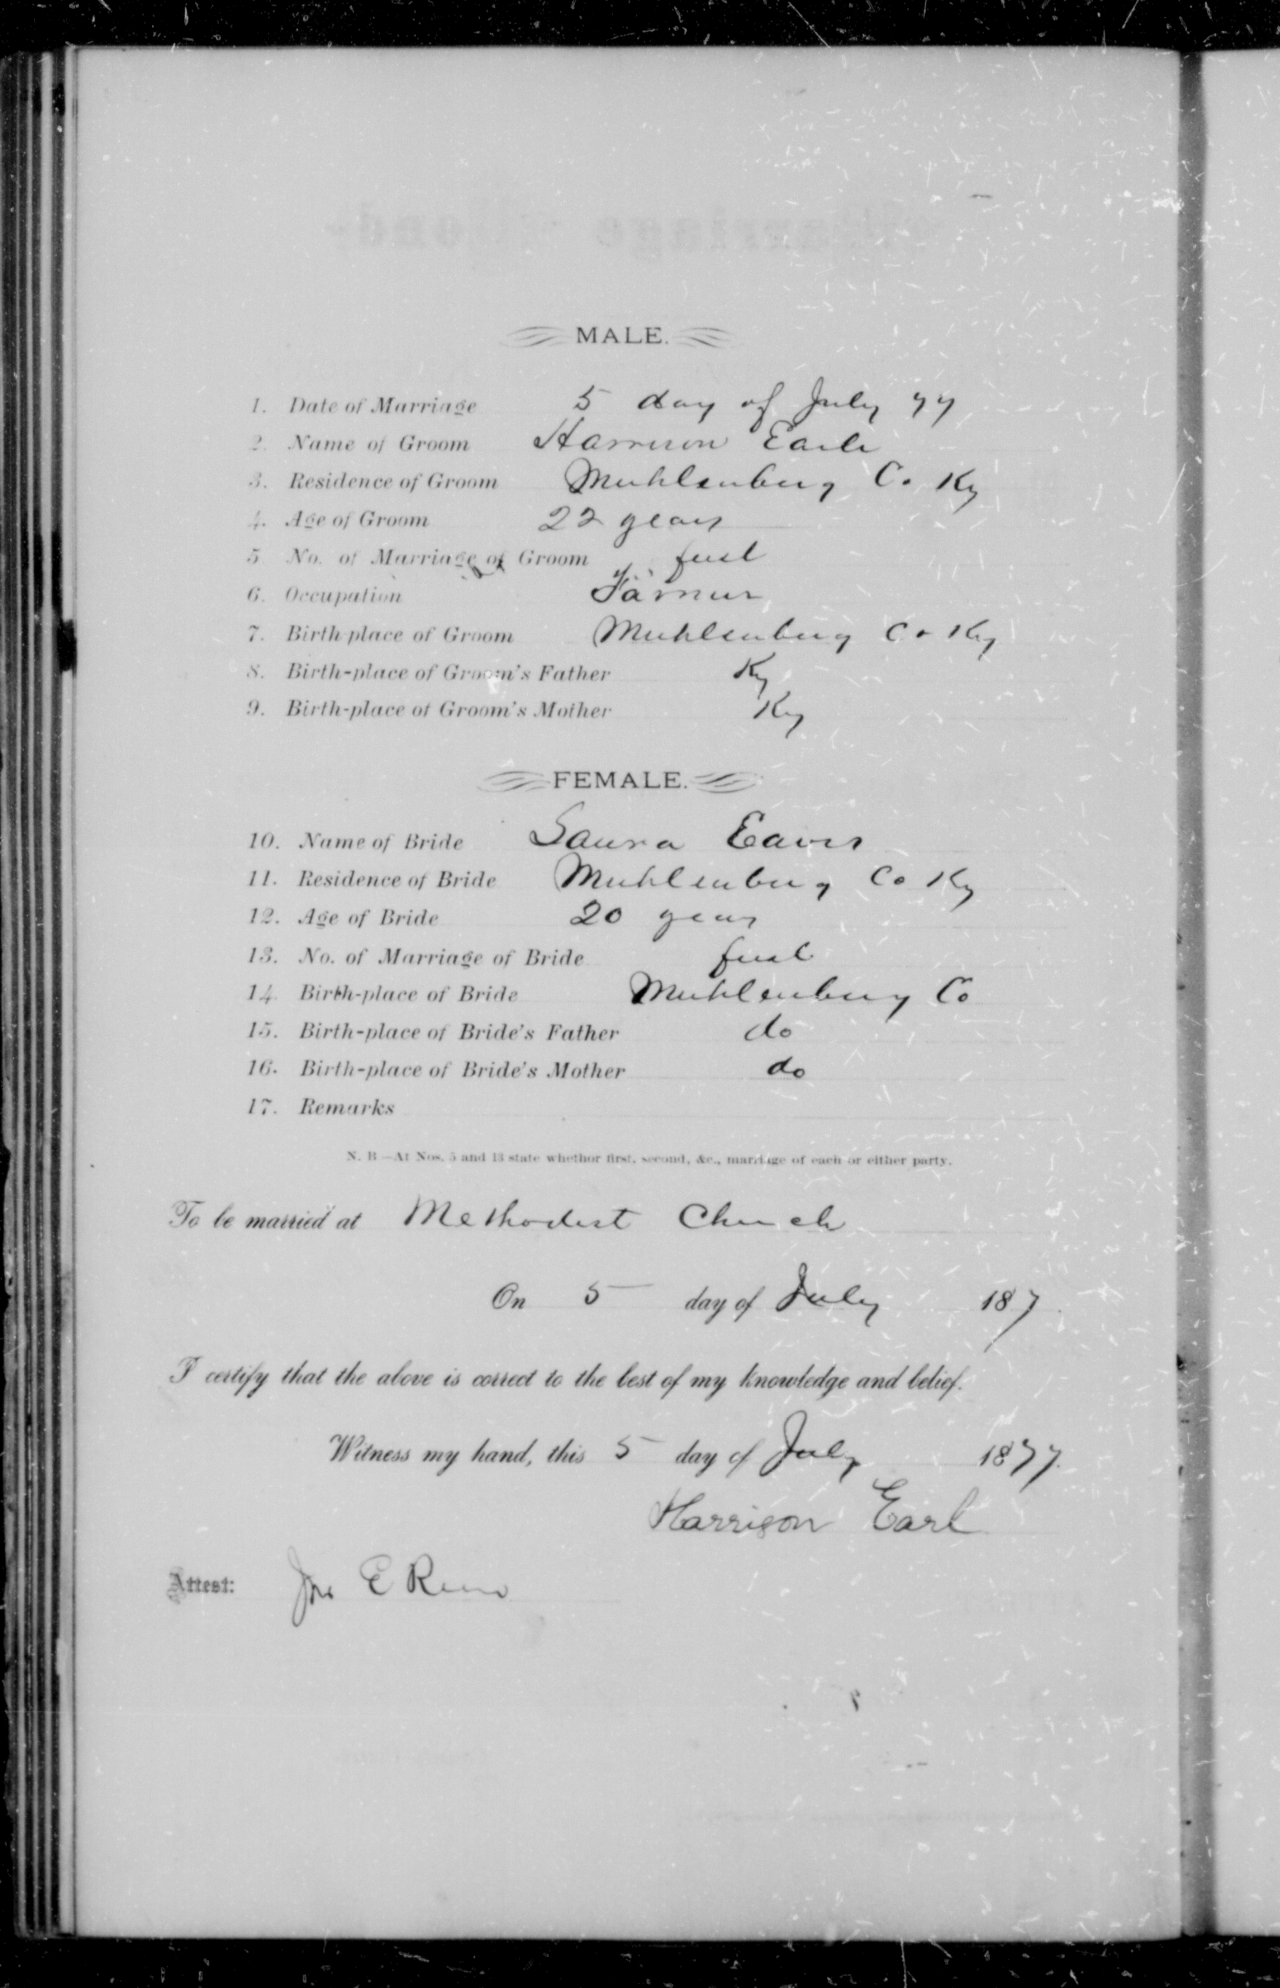 MALE.
1. Date of Marriage 5 day of July 77
2. Name of Groom Harrison Earle
3. Residence of Groom Muhlenburg Co. Ky
4. Age of Groom 22 years
5 No. of Marriage of Groom first
6. Occupation Farmer
7. Birth-place of Groom Muhlenburg Co Ky
8. Birth-place of Groom's Father Ky
9. Birth-place of Groom's Mother Ky
FEMALE.
10. Name of Bride Laura Eaves
11. Residence of Bride Muhlenburg Co Ky
12. Age of Bride 20 years
13. No. of Marriage of Bride first
14. Birth-place of Bride Muhlenburg Co
15. Birth-place of Bride's Father do
16. Birth-place of Bride's Mother do
17. Remarks
N. B.—At Nos. 5 and 13 state whether first, second, &c., marriage of each or either party.
To be married at Methodist Church
On 5 day of July 187
I certify that the above is correct to the best of my knowledge and belief.
Witness my hand, this 5 day of July 1877.
Harrison Earl
Attest: E